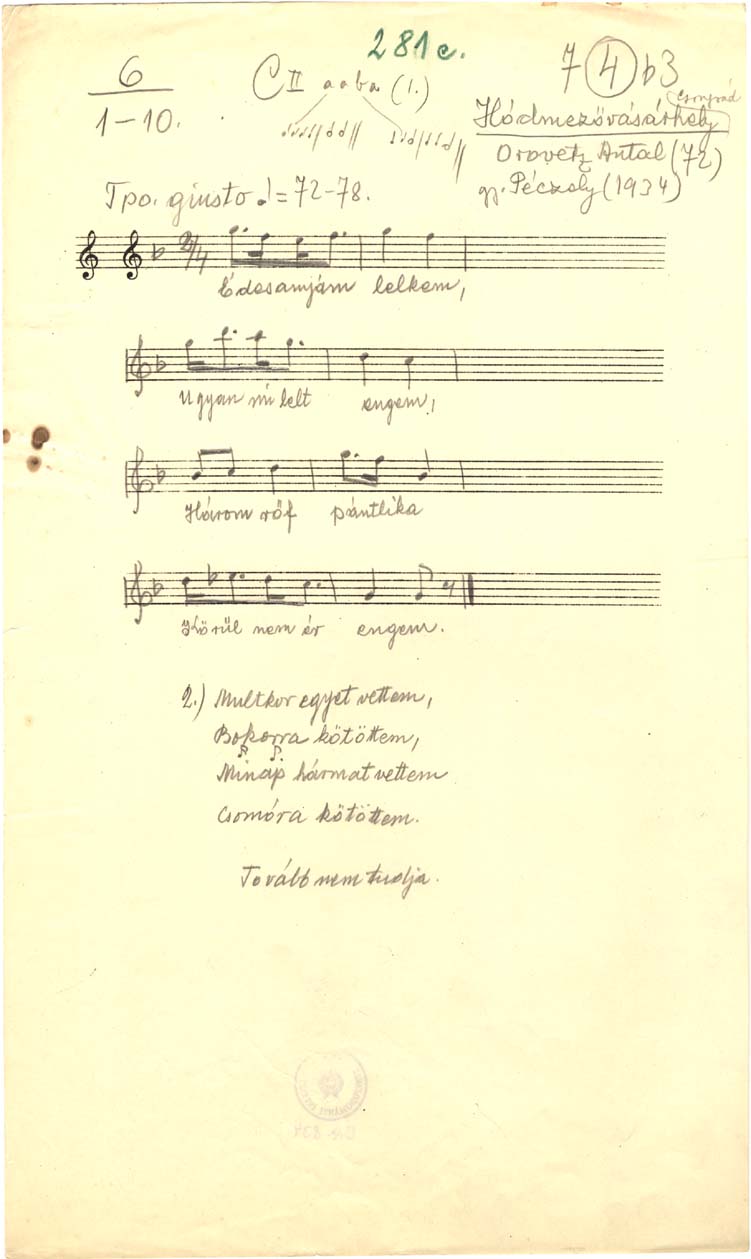 281c.
6
1-10.
C II aaba (1.)
7 4 b3
Csongrád
Hódmezővásárhely
Orovetz Antal (72)
gy. Péczely (1934)
Tpo. giusto ♩=72-78.
2/4
Édesanyám lelkem,
Ugyan mi lelt engem,
Három rőf pántlika
Körül nem ér engem.
2.) Multkor egyet vettem,
Bokorra kötöttem,
Minap hármat vettem
Csomóra kötöttem.
Tovább nem tudja.